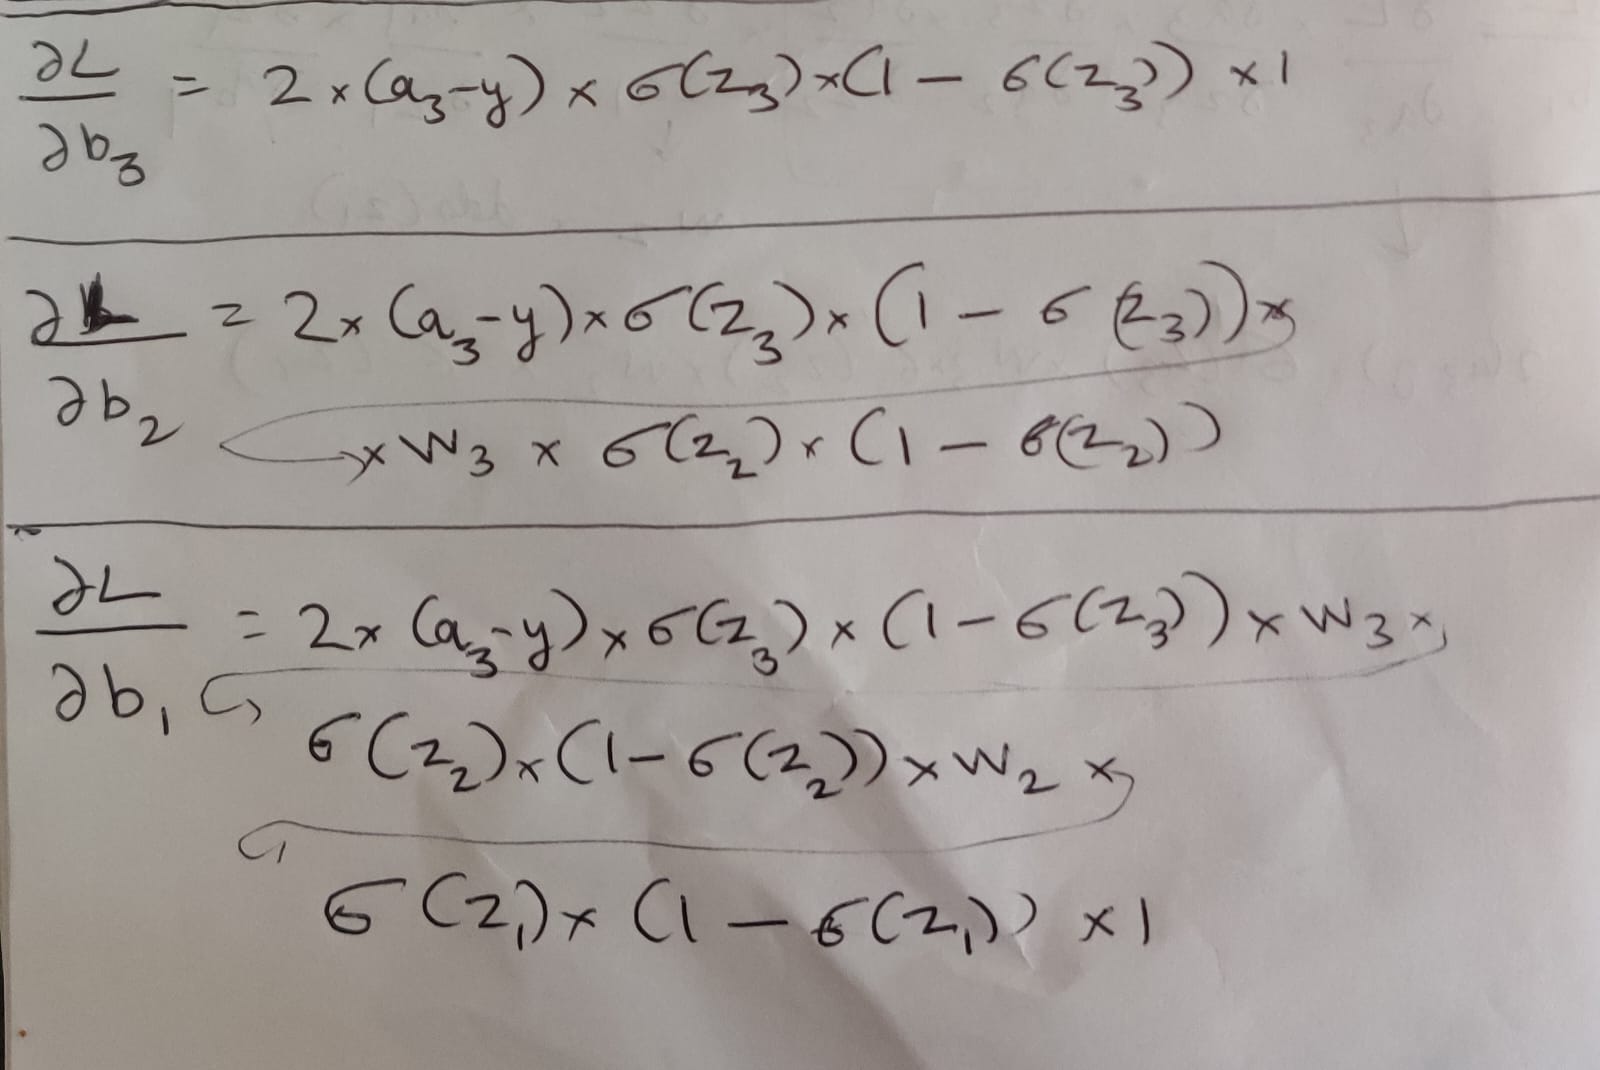 ∂L/∂b₃ = 2 × (a₃-y) × σ(z₃) × (1 - σ(z₃)) × 1
∂L/∂b₂ = 2 × (a₃-y) × σ(z₃) × (1 - σ(z₃)) ×
× W₃ × σ(z₂) × (1 - σ(z₂))
∂L/∂b₁ = 2 × (a₃-y) × σ(z₃) × (1 - σ(z₃)) × W₃ ×
σ(z₂) × (1 - σ(z₂)) × W₂ ×
σ(z₁) × (1 - σ(z₁)) × 1